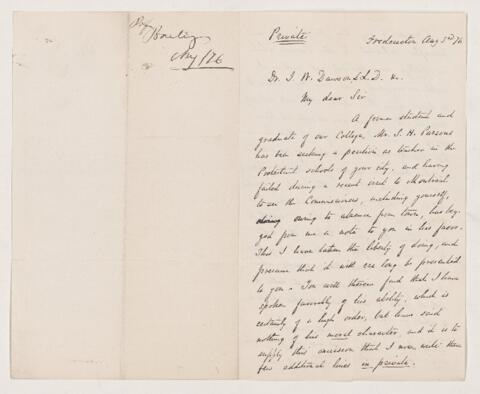 Private
Fredericton Aug 3rd/76
Dr. J. W. Dawson L.L.D. &c.
My dear Sir
A former student and
graduate of our College, Mr. J. H. Parsons
has been seeking a position as teacher in the
Protestant schools of your city, and having
failed during a recent visit to Montreal
to see the Commissioners, including yourself,
owing to absence from town, has beg-
ged from me a note to you in his favor.
This I have taken the liberty of doing, and
presume that it will ere long be presented
to you. You will therein find that I have
spoken favorably of his ability, which is
certainly of a high order, but have said
nothing of his moral character, and it is to
supply this omission that I now write these
few additional lines in private.
Aug /76